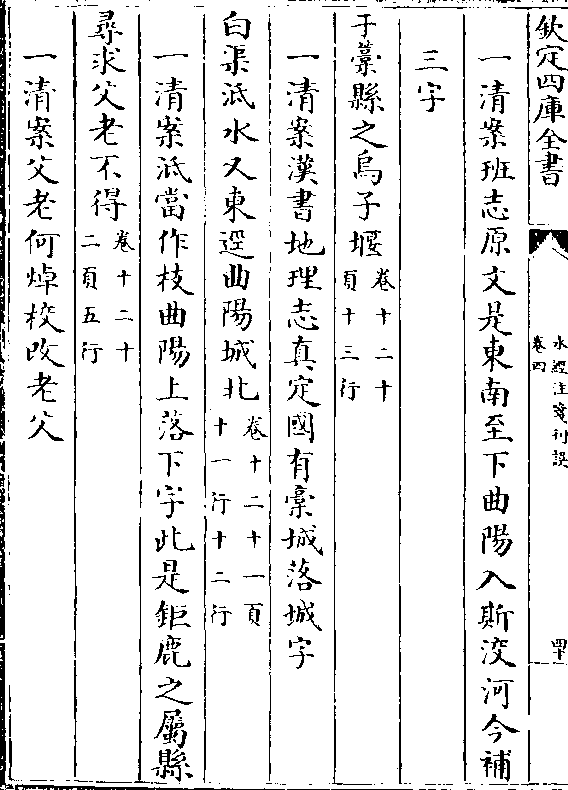 欽定四庫全書
水經注箋刊誤
卷四
四十
一清案班志原文是東南至下曲陽入斯洨河今補
三字
于藁縣之烏子堰卷十二十
頁十三行
一清案漢書地理志真定國有藁城落城字
白渠泜水又東逕曲陽城北卷十二十一頁
十一行十二行
一清案泜當作枝曲陽上落下字此是鉅鹿之屬縣
尋求父老不得卷十二十
二頁五行
一清案父老何焯校改老父